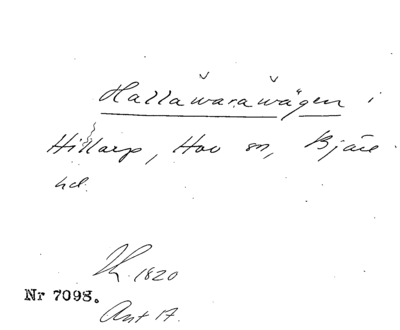 Hallawarawägen i
Hillarp, Hov sn, Bjäre
hd.
1820
Nr 7098.
Ant 17.